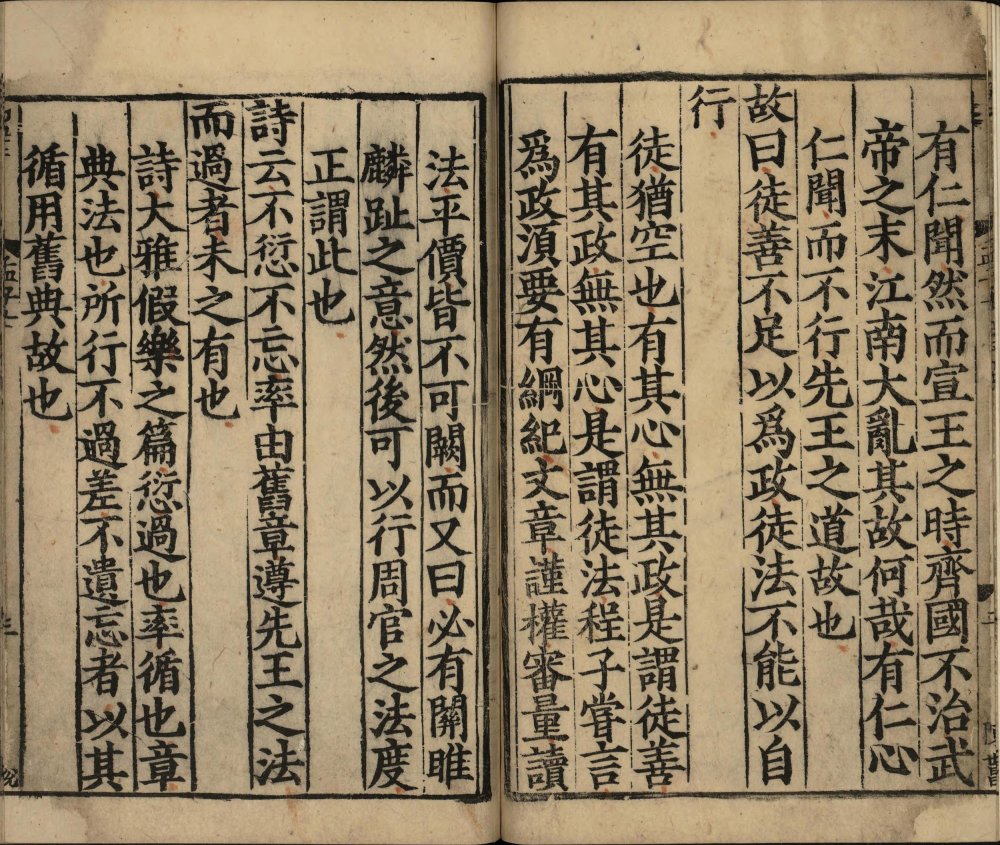 有仁聞然而宣王之時齊國不治武
帝之末江南大亂其故何哉有仁心
仁聞而不行先王之道故也
故曰徒善不足以爲政徒法不能以自
行
徒猶空也有其心無其政是謂徒善
有其政無其心是謂徒法程子甞言
爲政湏要有綱紀文章謹權審量讀
法平價皆不可闕而又曰必有關雎
麟趾之意然後可以行周官之法度
正謂此也
詩云不愆不忘率由舊章遵先王之法
而過者未之有也
詩大雅假樂之篇愆過也率循也章
典法也所行不過差不遺忘者以其
循用舊典故也